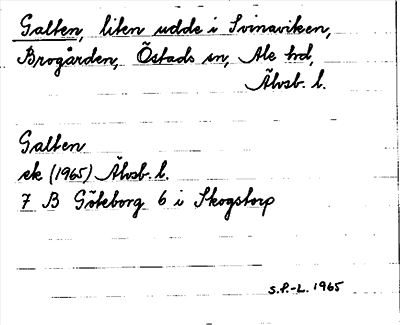 Galten, liten udde i Svinaviken,
Brogården, Östads sn, Ale hd,
Älvsb. l.
Galten
ek (1965) Älvsb. l.
7 B Göteborg 6 i Skogstorp
S.P.-L. 1965